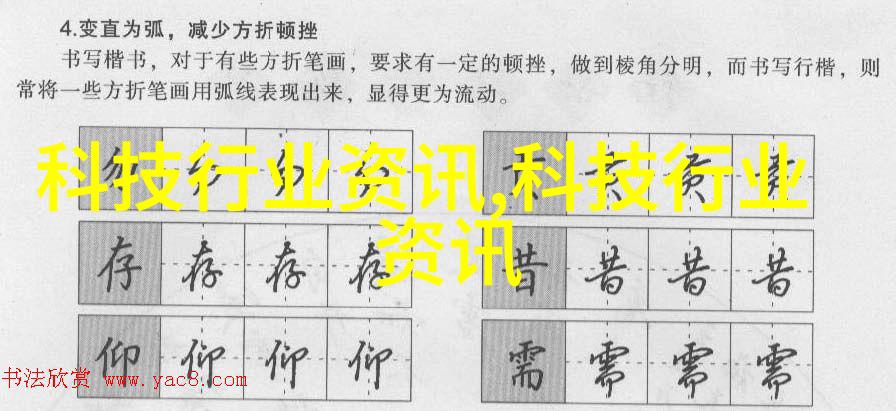 4.变直为弧，减少方折顿挫
书写楷书，对于有些方折笔画，要求有一定的顿挫，做到棱角分明，而书写行楷，则
常将一些方折笔画用弧线表现出来，显得更为流动。
科技行业资讯,科技行业
资讯
存 存 存 存
昔 昔 昔 昔
仰 仰 仰 仰
需 需 需 需
书法欣赏 www.yac8.com